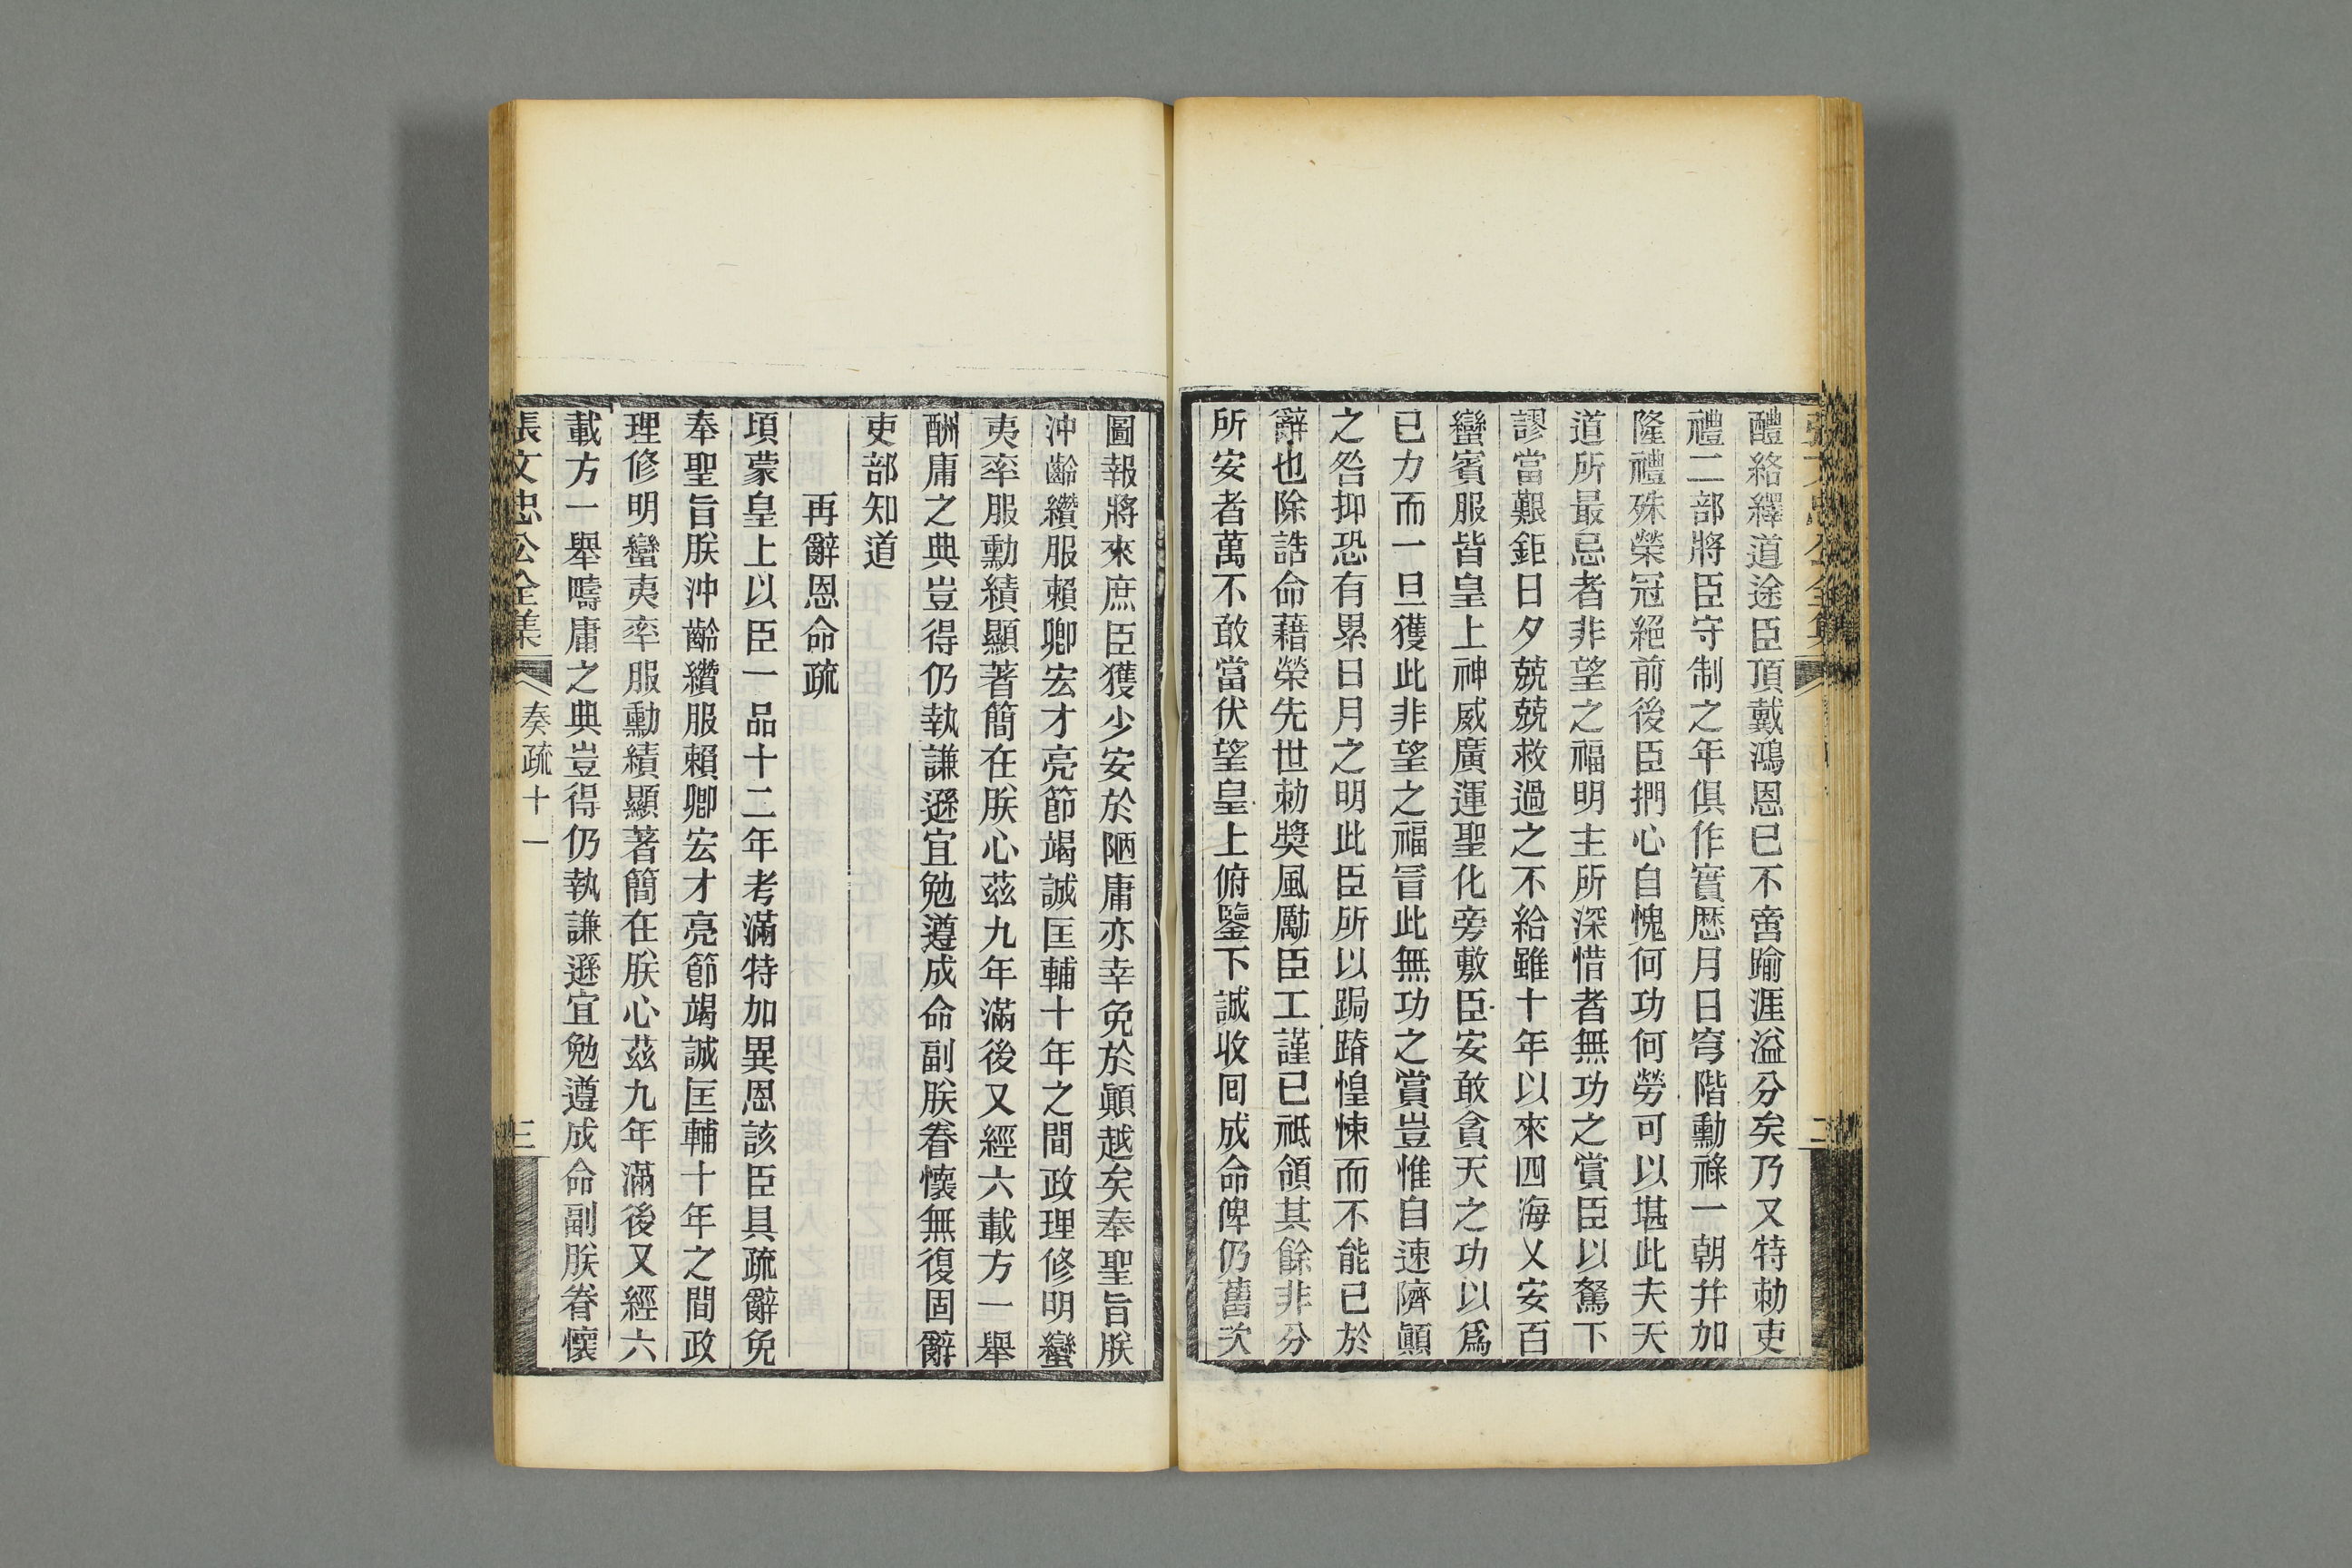 醴絡繹道途臣頂戴鴻恩已不啻踰涯溢分矣乃又特勅吏
禮二部將臣守制之年俱作實歷月日穹階勳祿一朝幷加
隆禮殊榮冠絕前後臣捫心自愧何功何勞可以堪此夫天
道所最忌者非望之福明主所深惜者無功之賞臣以駑下
謬當艱鉅日夕兢兢救過之不給雖十年以來四海乂安百
蠻賓服皆皇上神威廣運聖化旁敷臣安敢貪天之功以爲
已力而一旦獲此非望之福冒此無功之賞豈惟自速隮顚
之咎抑恐有累日月之明此臣所以跼蹐惶悚而不能已於
辭也除誥命藉榮先世勅獎風勵臣工謹已祗領其餘非分
所安者萬不敢當伏望皇上俯鑒下誠收回成命俾仍舊次
圖報將來庶臣獲少安於陋庸亦幸免於顚越矣奉聖旨朕
沖齡纘服賴卿宏才亮節竭誠匡輔十年之間政理修明蠻
夷率服勳績顯著簡在朕心茲九年滿後又經六載方一舉
酬庸之典豈得仍執謙遜宜勉遵成命副朕眷懷無復固辭
吏部知道
再辭恩命疏
頃蒙皇上以臣一品十二年考滿特加異恩該臣具疏辭免
奉聖旨朕沖齡纘服賴卿宏才亮節竭誠匡輔十年之間政
理修明蠻夷率服勳績顯著簡在朕心茲九年滿後又經六
載方一舉疇庸之典豈得仍執謙遜宜勉遵成命副朕眷懷
張文忠公全集 奏疏十一 三